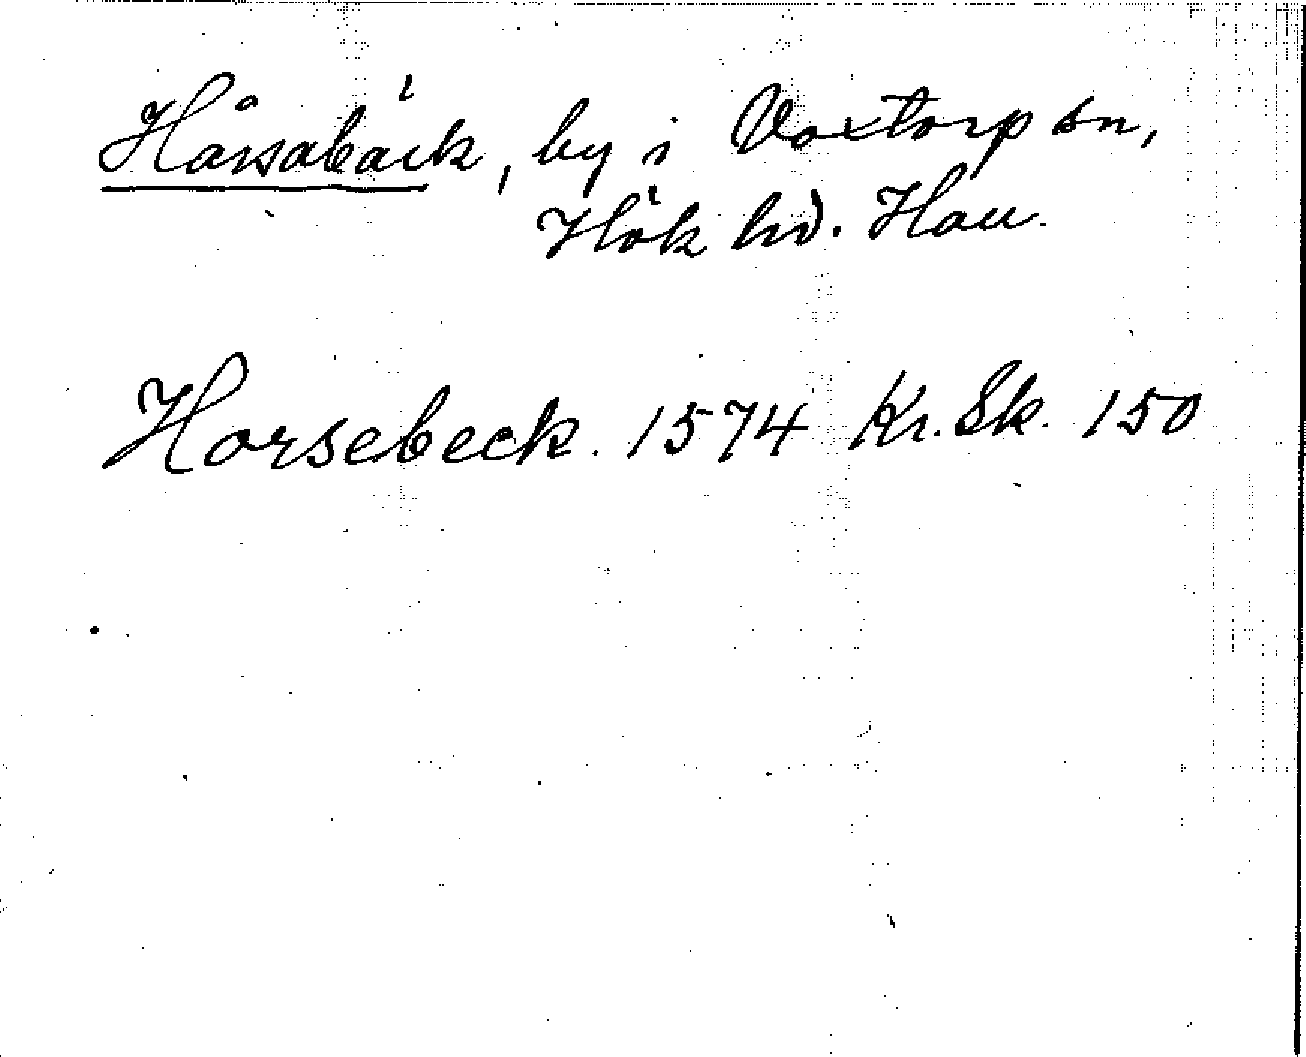 Hårsabäck, by i Voxtorp sn,
Hök hd. Hall.
Horsebeck. 1574 Kr. Sk. 150